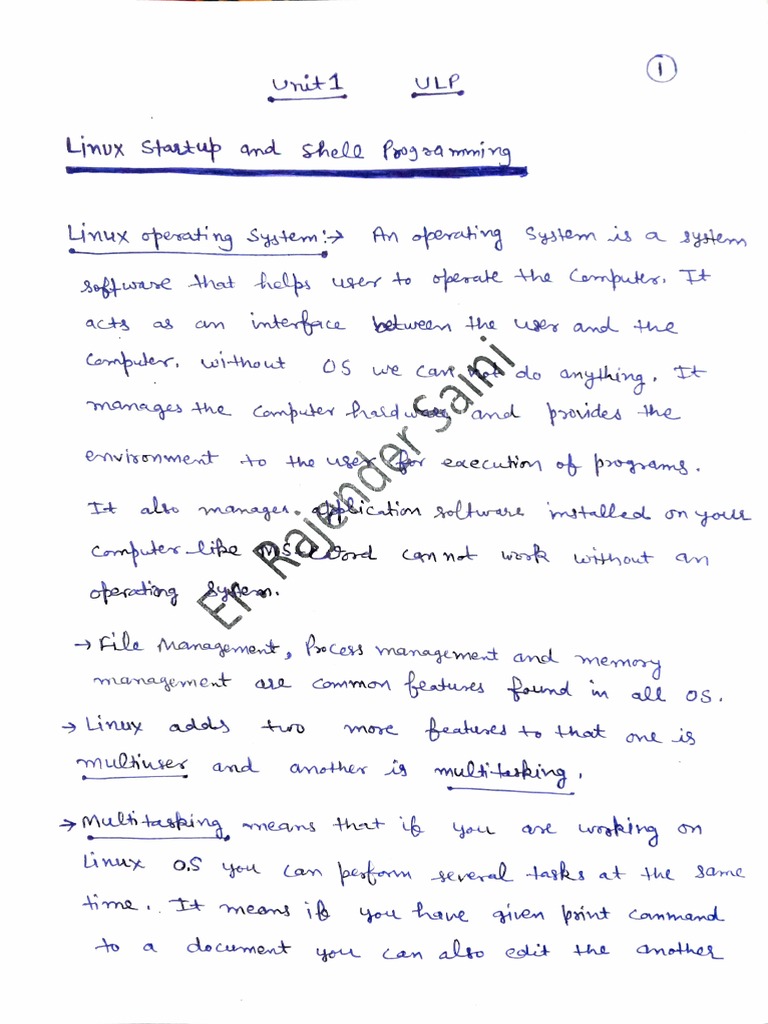 1
Unit 1 ULP
Linux Startup and Shell Programming
Linux operating System:→ An operating System is a system
software that helps user to operate the Computer. It
acts as an interface between the user and the
Computer. without OS we can not do anything. It
manages the computer hardware and provides the
environment to the user for execution of programs.
It also manages application software installed on your
computer like MS-Word can not work without an
operating system.
→ File Management, Process management and memory
management are common features found in all OS.
→ Linux adds two more features to that one is
multiuser and another is multitasking.
→ Multitasking means that if you are working on
Linux O.S you can perform several tasks at the same
time. It means if you have given print command
to a document you can also edit the another
Er. Rajender Saini